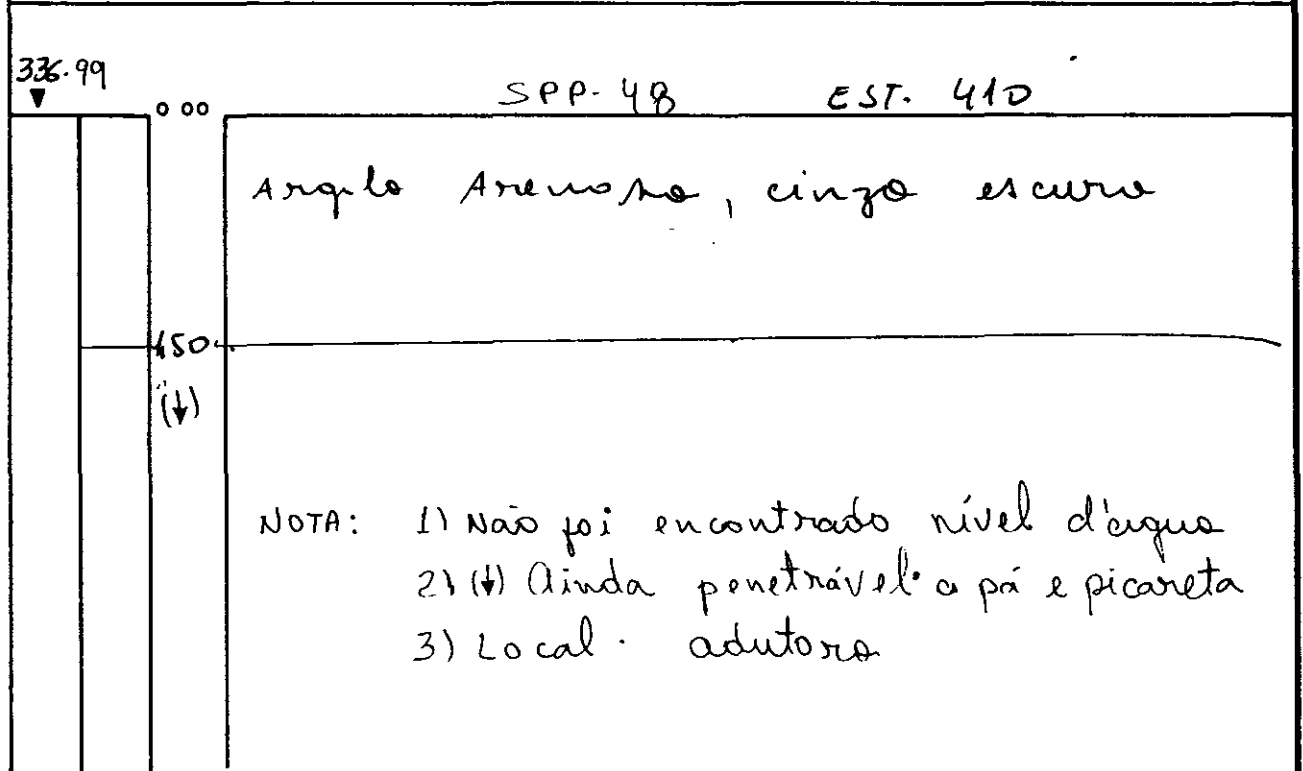 336.99
SPP-48 EST. 410
0 00
Argila Arenosa, cinza escuro
150
(↓)
NOTA: 1) Não foi encontrado nível d'água
2) (↓) Ainda penetrável a pá e picareta
3) Local. adutora